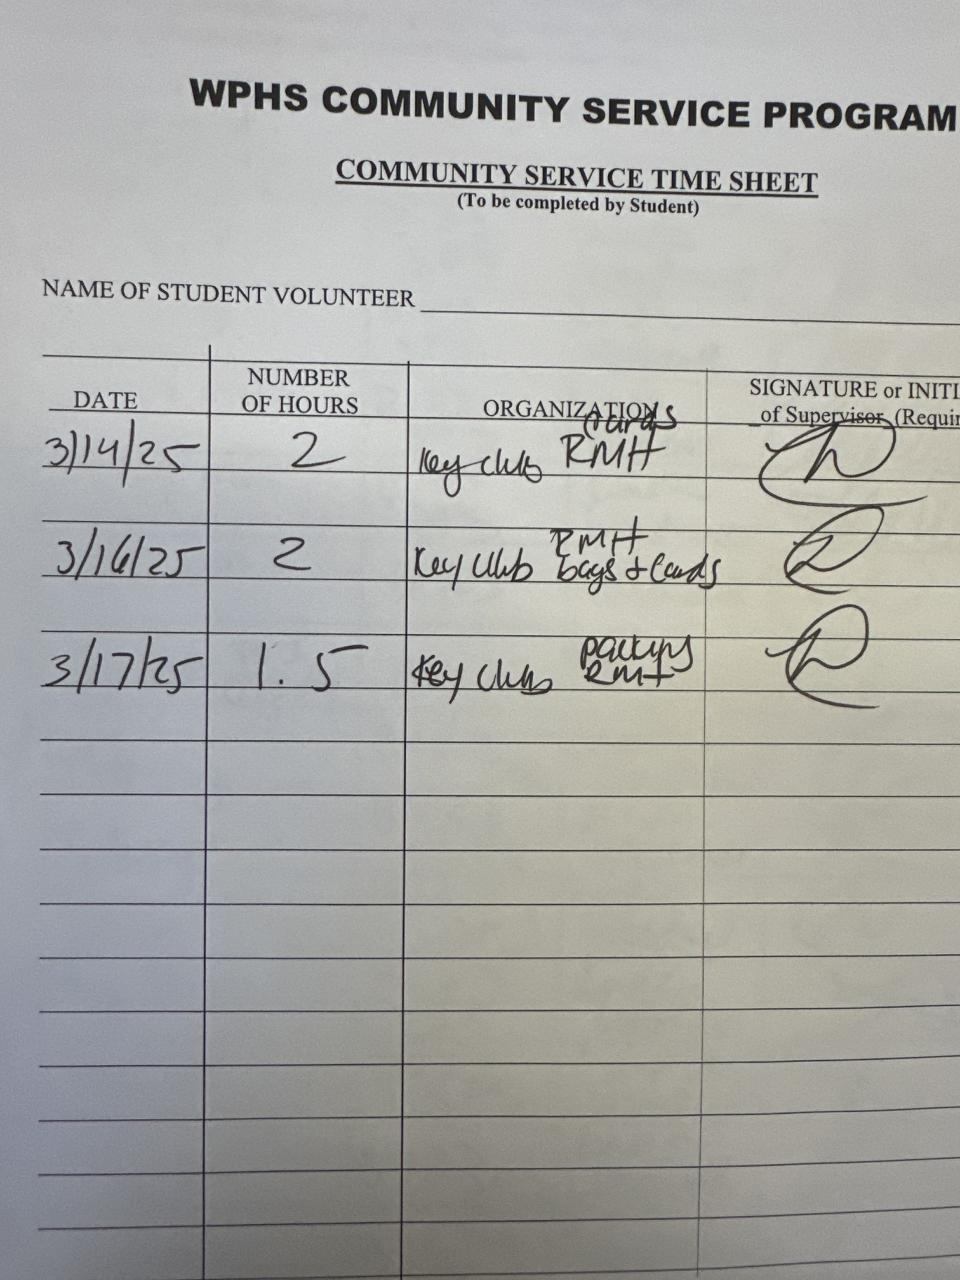 WPHS COMMUNITY SERVICE PROGRAM
COMMUNITY SERVICE TIME SHEET
(To be completed by Student)
NAME OF STUDENT VOLUNTEER
DATE
NUMBER
OF HOURS
ORGANIZATION
SIGNATURE or INITI
of Supervisor (Requir
3/14/25 2 Key club cards
RMH
3/16/25 2 Key Club RMH
bags + Cards
3/17/25 1.5 Key club
RMH